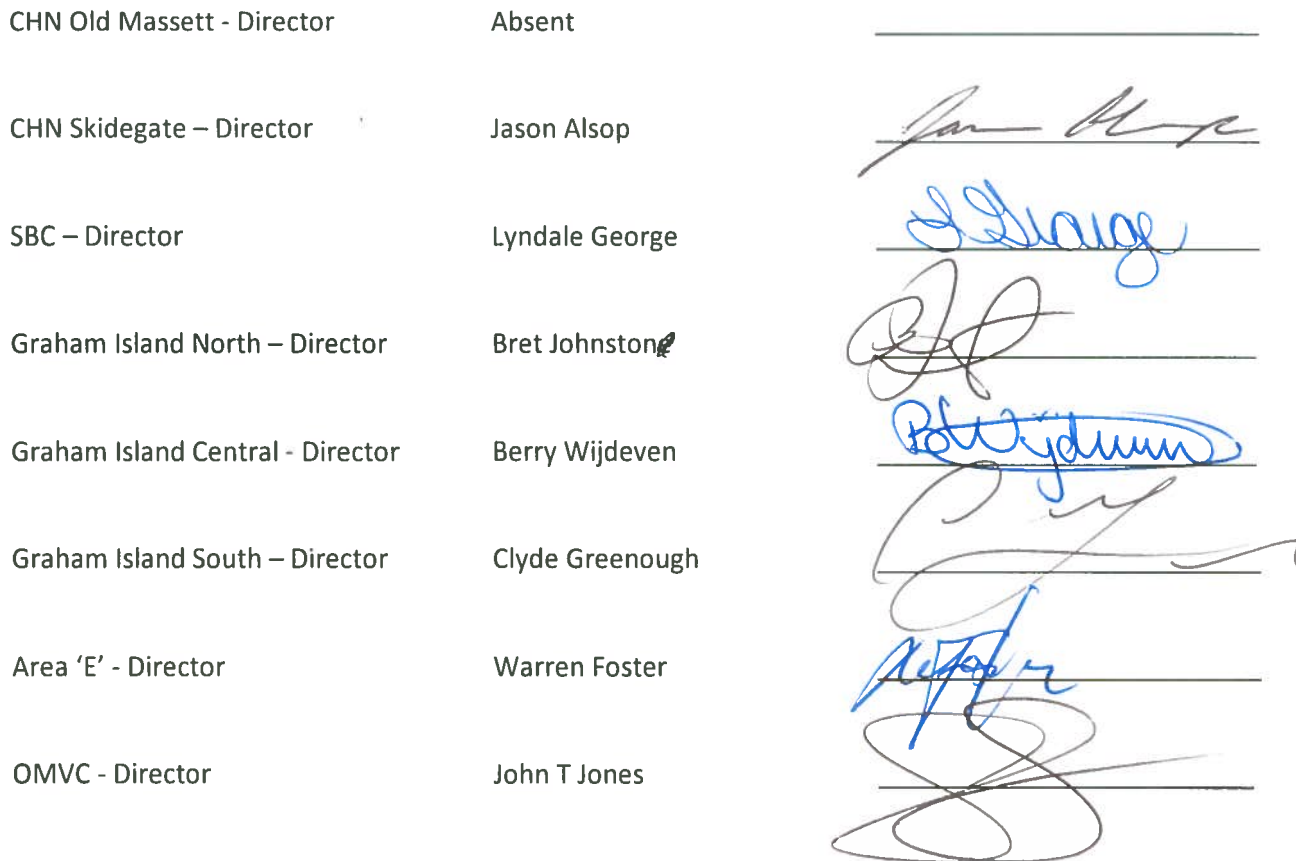 CHN Old Massett - Director Absent
CHN Skidegate – Director Jason Alsop
SBC – Director Lyndale George George
Graham Island North – Director Bret Johnston
Graham Island Central - Director Berry Wijdeven B Wijdeven
Graham Island South – Director Clyde Greenough
Area ‘E’ - Director Warren Foster
OMVC - Director John T Jones